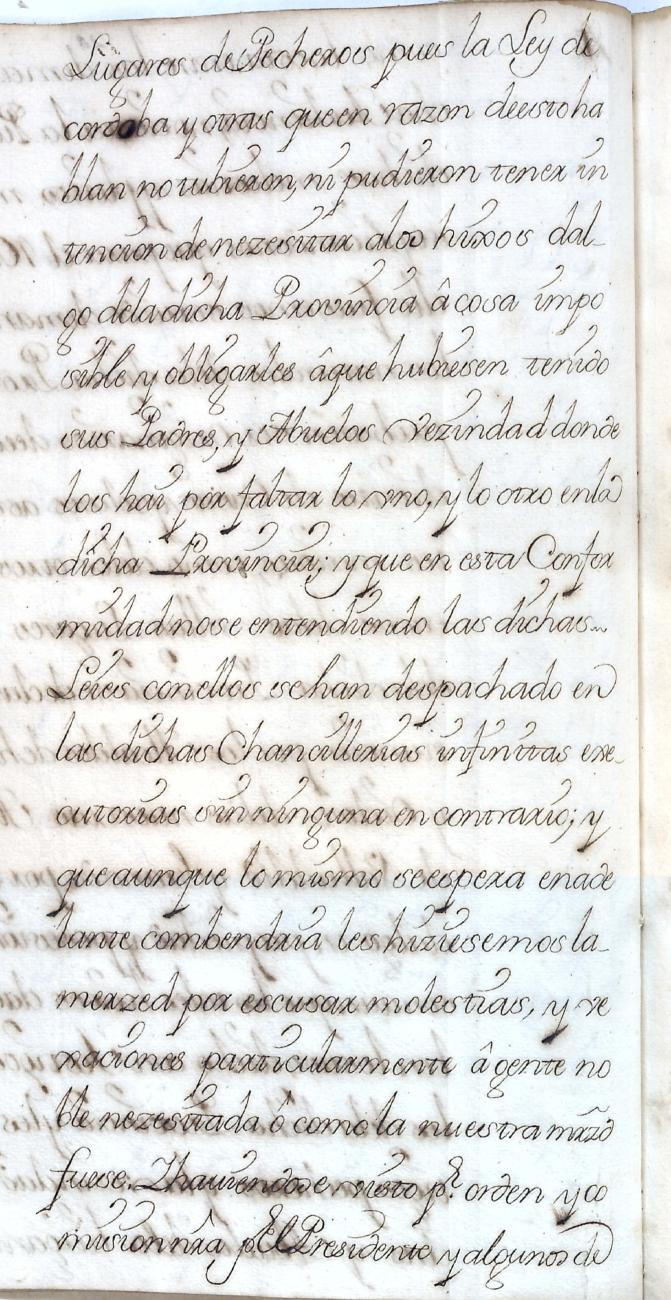 Lugares de Pecheros pues la Ley de
cordoba y otras queen razon deestoha
blan notubieron, ni pudieron tener in
tencion denezesitar alos hixos dal-
go deladicha Provincia â cosa impo
sible y obligarles âque hubiesen tenido
sus Padres, y Abuelos Vezindad donde
los hai por faltar lo vno, y lo otro enla
dicha Provincia; yque en esta Confor
midad nose entendiendo las dichas
Leies conellos sehan despachado en
las dichas Chancillerias infinitas exe-
cutorias sin ninguna en contrario; y
queaunque lo mismo seespera enade
lante combendria les hiziesemos la-
merzed por escusar molestias, y ve
xaciones particularmente â gente no
ble nezesitada ô como la nuestra mrzd
fuese. Ihauiendose visto pr. orden y co
mision nrâ pr El Presidente y algunos de